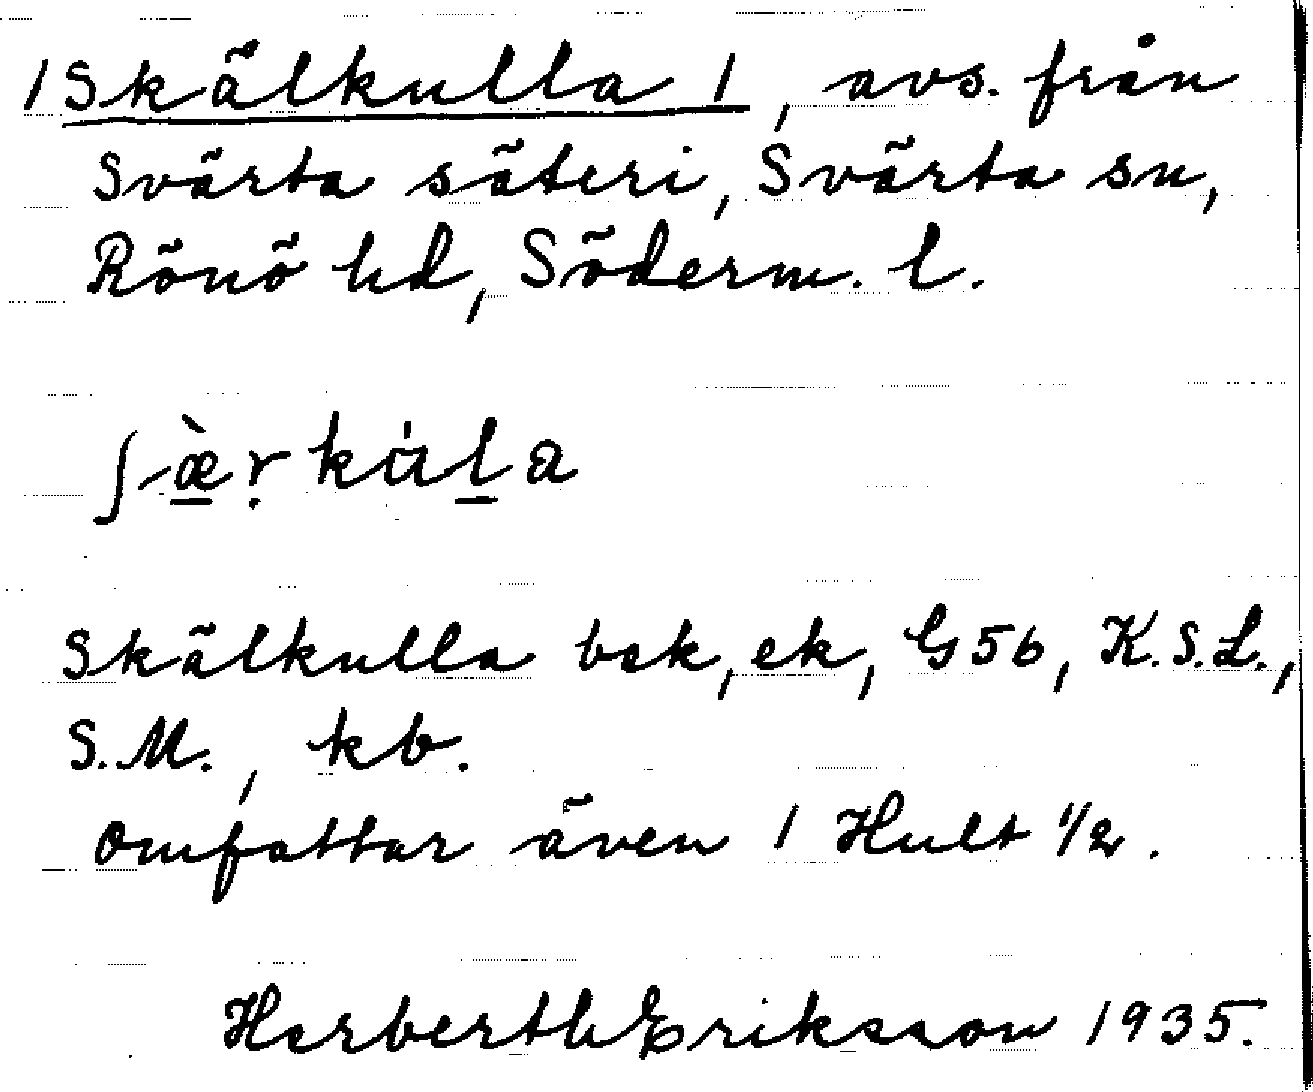 1 Skälkulla 1, avs. från
Svärta säteri, Svärta sn,
Rönö hd, Söderm. l.
Skälkulla bsk, ek, G56, K.S.L.,
S.M., kb.
Omfattar även 1 Hult 1/2.
Herberth Eriksson 1935.